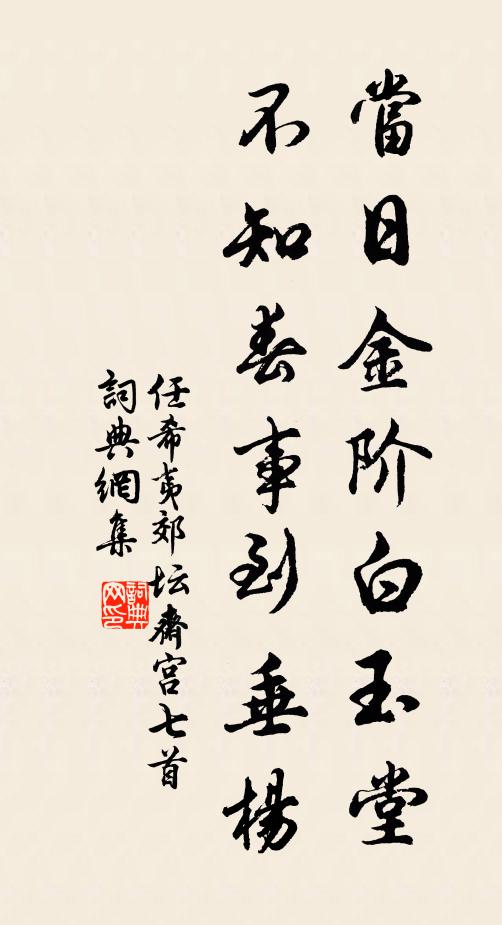 當日金阶白玉堂
不知春事到垂楊
任希夷郊坛斋宫七首
詞典網集
詞典网印